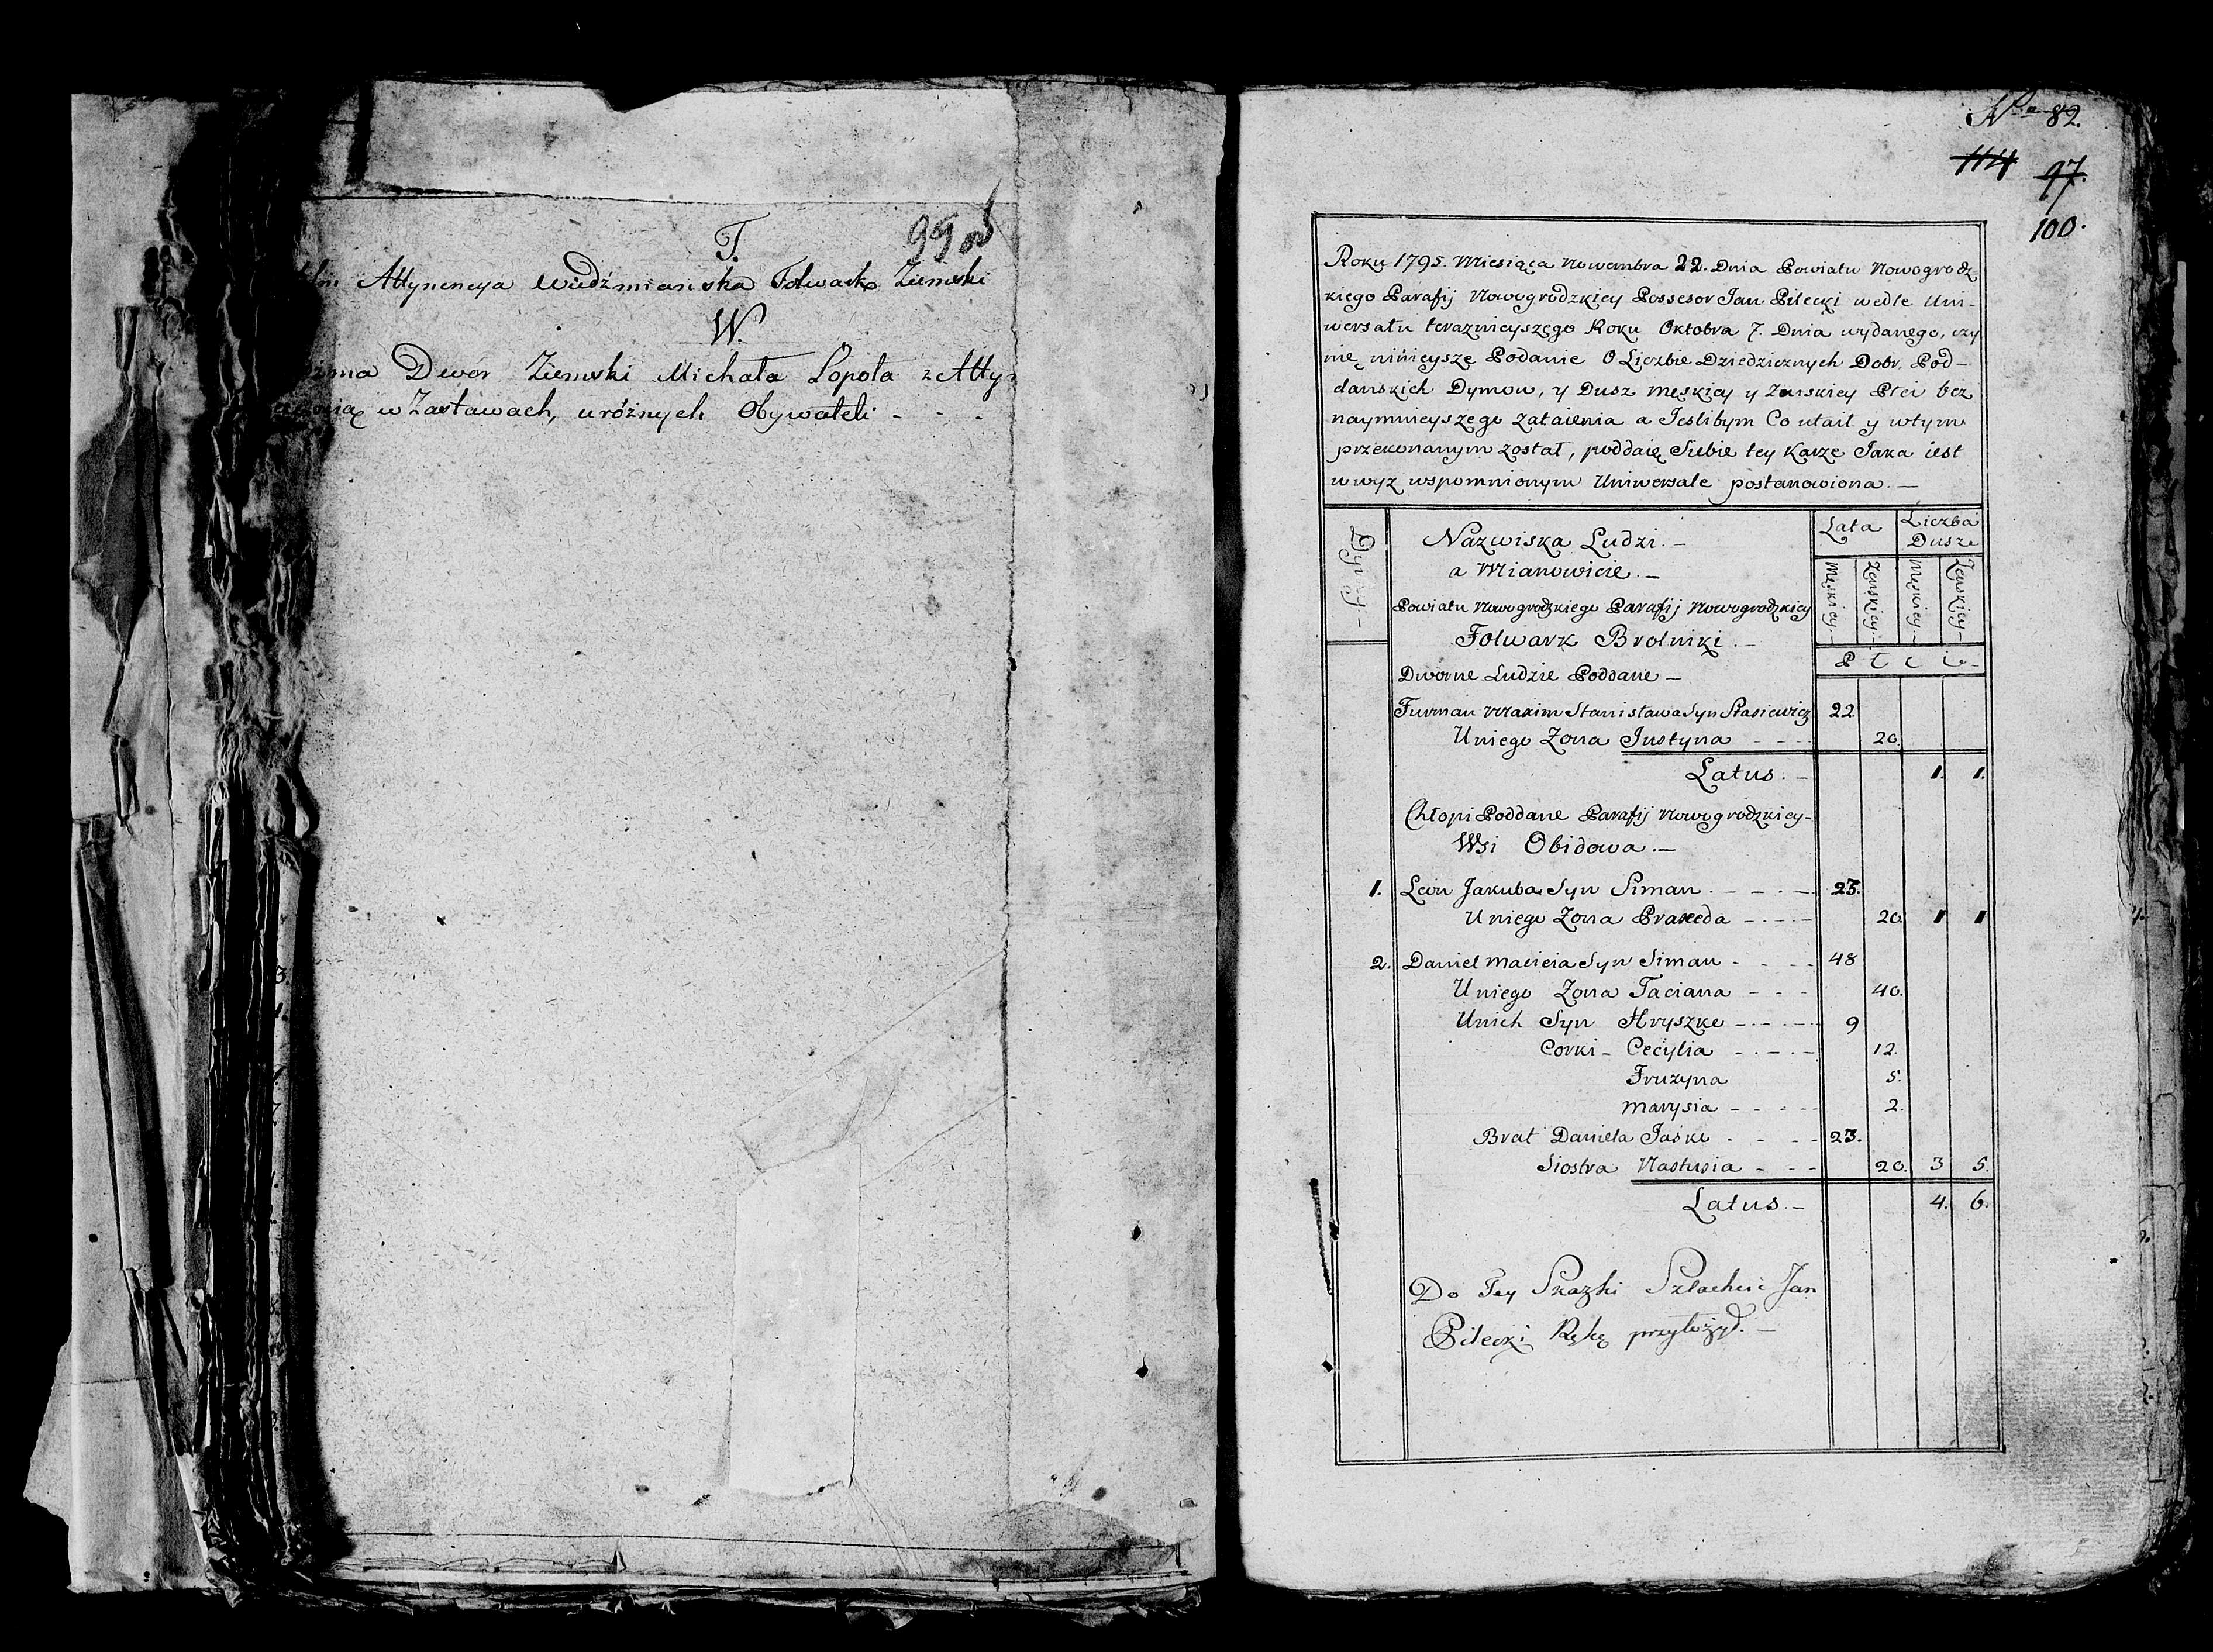 T.
99 об
Attynencya Wiedźmianska Folwark Ziemski
W.
Dwor Ziemski Michała Łopota z Atty=
w Zastawach, u różnych Obywateli - - -
N° 82.
114 97.
100.
Roku 1795. Miesiąca Nowembra 22. Dnia Powiatu Nowogrodz=
kiego Parafij Nowogrodzkiey Possesor Jan Pilecki wedle Uni-
wersału teraznieyszego Roku Oktobra 7. Dnia wydanego, czy
nię ninieysze Podanie O Liczbie Dziedzicznych Dobr, Pod-
danskich Dymow, y Dusz Męskiey y Żenskiey Płci bez
naymnieyszego zataienia a Jeslibym Co utaił y wtym
przekonanym został, poddaię Siebie tey Karze Jaka iest
wwyż wspomnionym Uniwersale postanowiona. —
Dymy -
Nazwiska Ludzi. —
a Mianowicie. —
Lata
Liczba
Dusze
Męskiey. -
Żenskiey. -
Męskiey. -
Żenskiey -
Powiatu Nowogrodzkiego Parafij Nowogrodzkiey
Folwark Brolniki. —
P ł c i. -
Dworne Ludzie Poddane —
Furman Maxim Stanisława Syn Stasiewicz 22.
Uniego Zona Justyna - - - 20.
Latus. — 1. 1.
Chłopi Poddane Parafij Nowogrodzkiey -
Wsi Obidowa. —
1. Leon Jakuba Syn Siman. - - - 23.
Uniego Zona Praxeda - - - 20. 1 1
2. Daniel Macieia Syn Siman - - - 48
Uniego Zona Taciana - - - 40.
Unich Syn Hryszko - - - 9
Corki - Cecylia - - - 12.
Fruzyna 5.
Marysia - - - 2.
Brat Daniela Jasko - - - 23.
Siostra Nastusia - - - 20. 3 5.
Latus. — 4. 6.
Do Tey Skazki Szlachcic Jan
Pilecki Rękę przyłożył. —